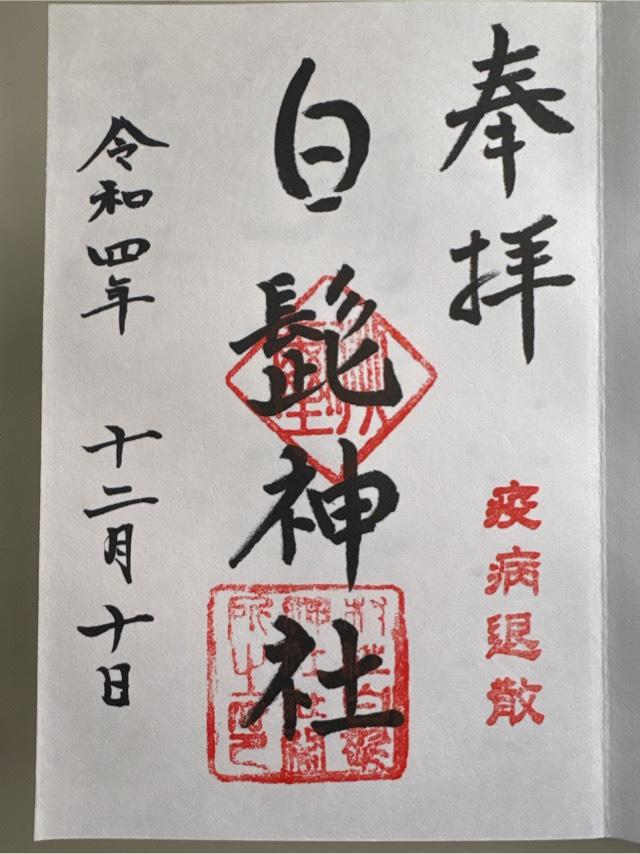 奉拝
疫病退散
白髭神社
令和四年 十二月 十日